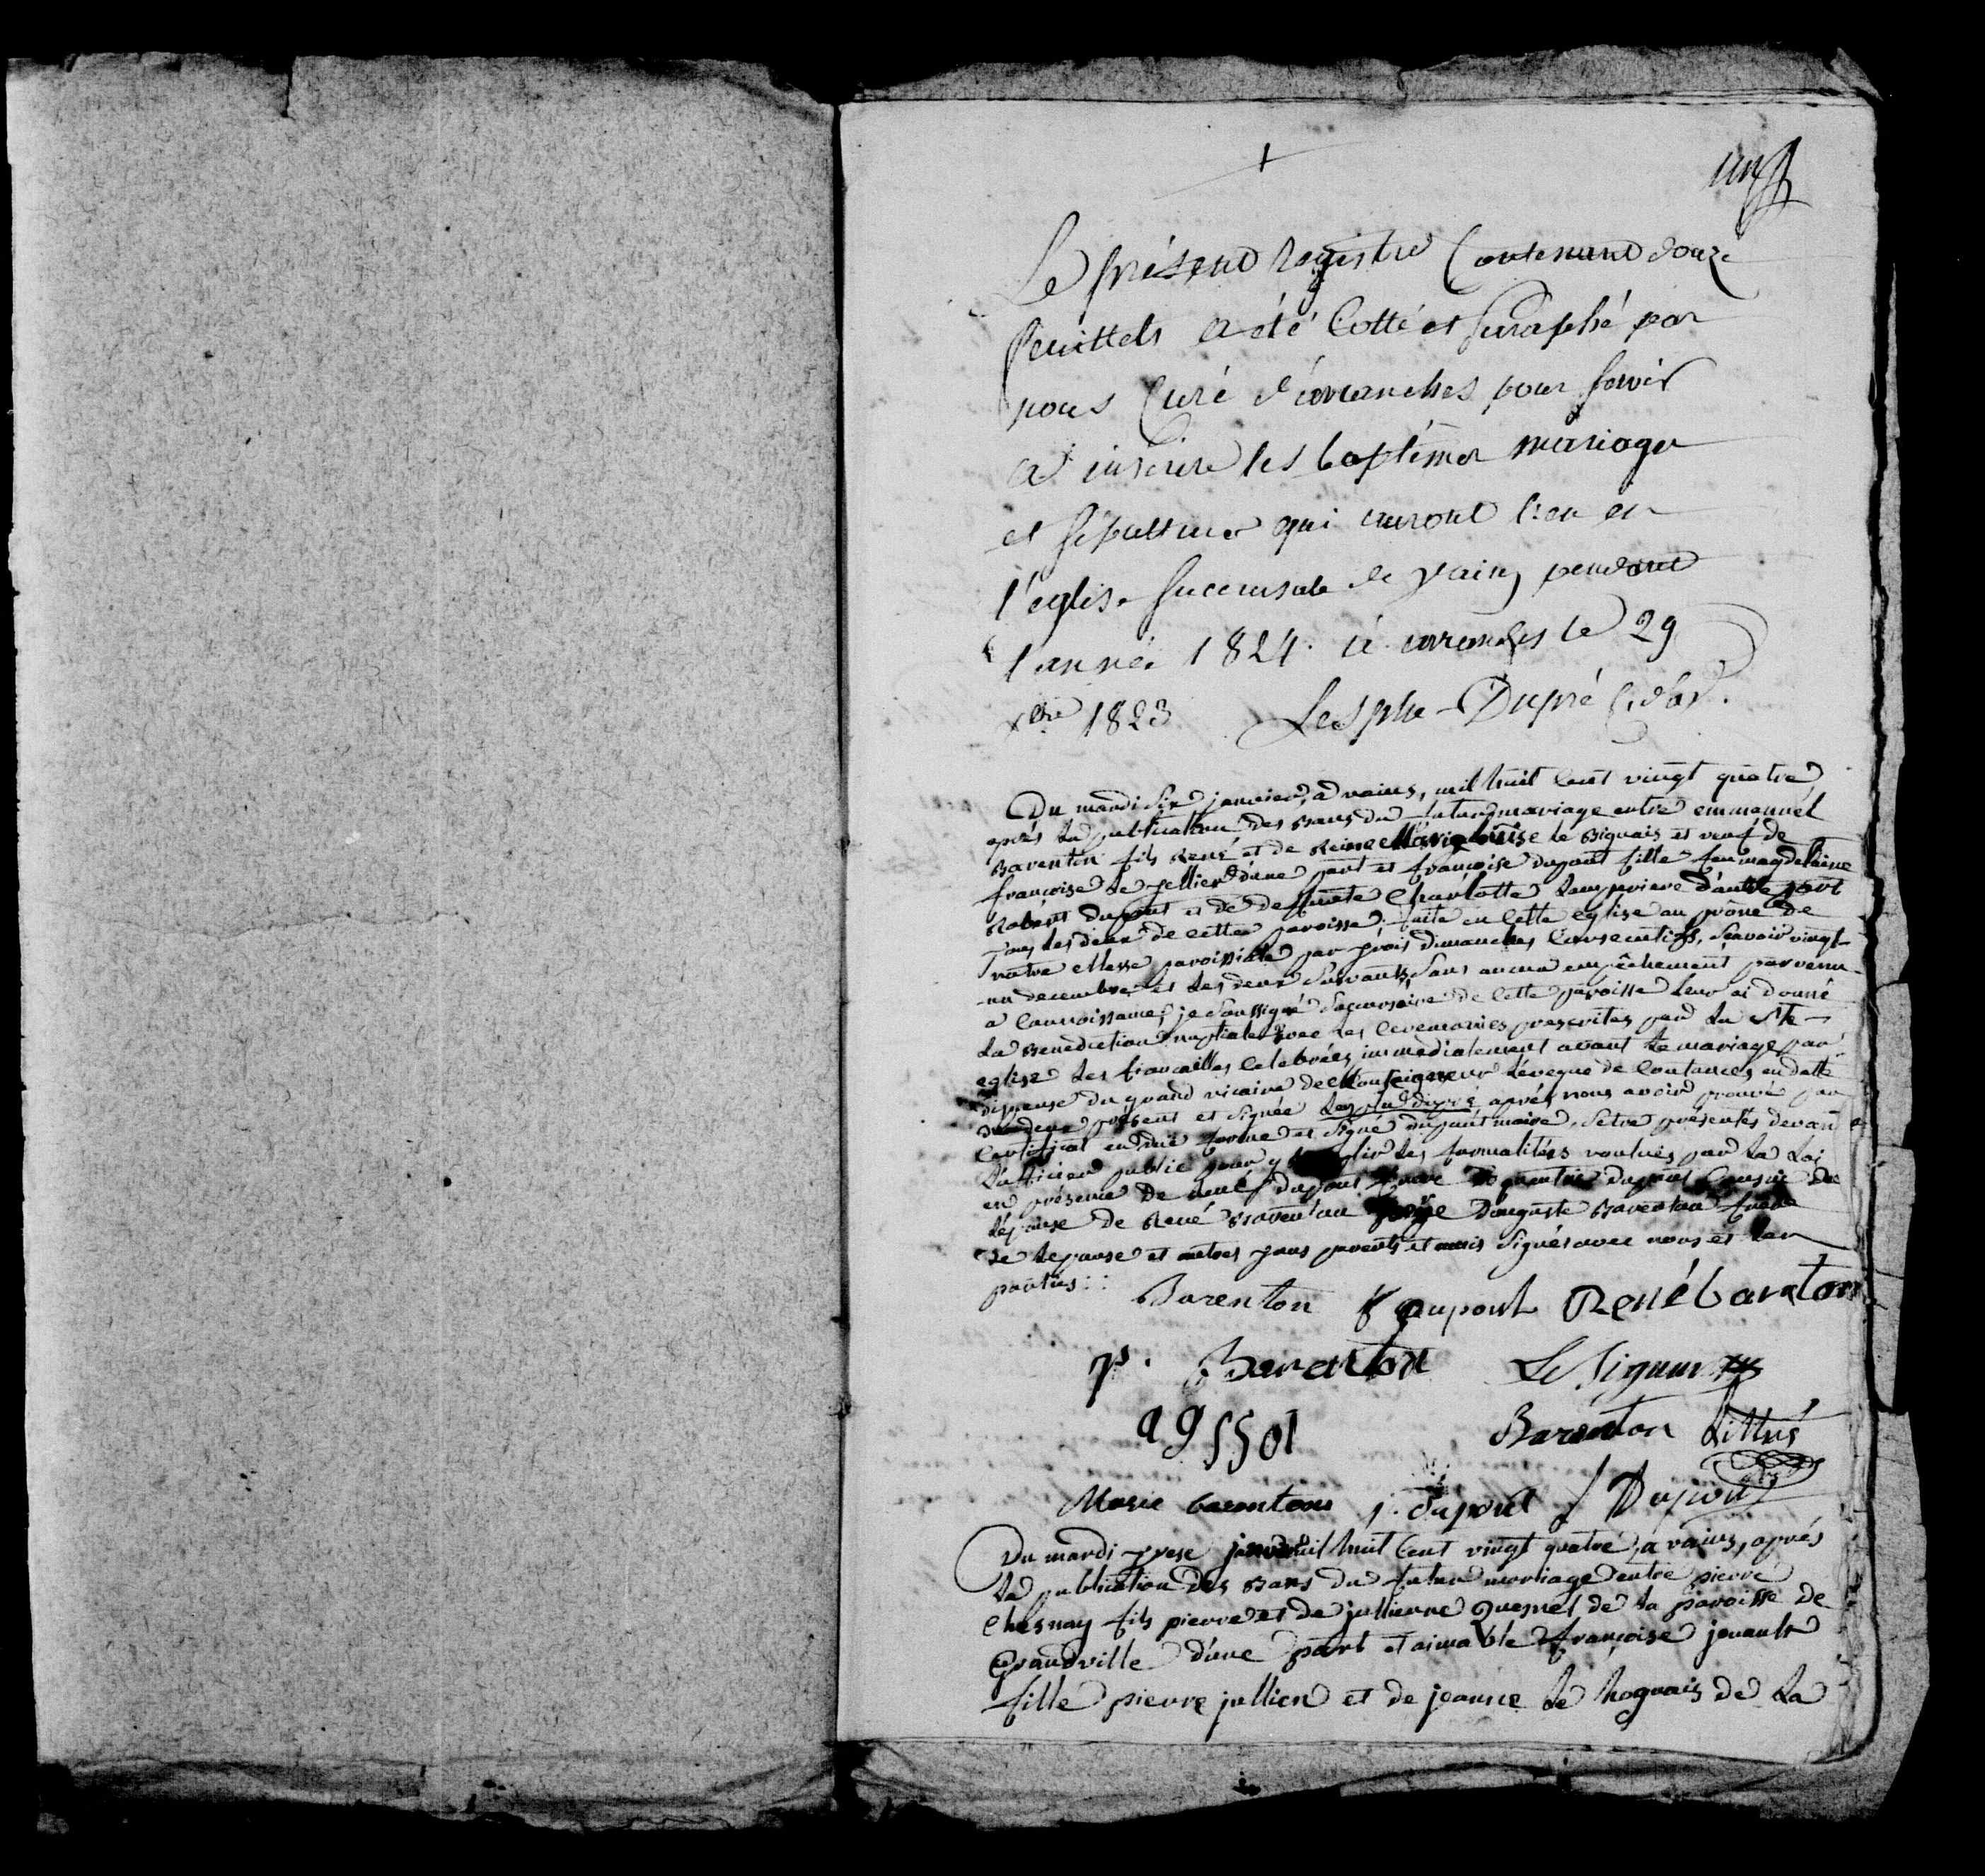 un
Le présent Registre Contenant douze
feuillets a été Cotté et paraphé par
nous Curé d'avranches pour servir
a inscrire les baptêmes mariages
et sépultures qui auront lieu en
l'eglise succursale de vains pendant
l'année 1824. à avranches le 29
xbre 1823 Lesplu-Dupré c. d'av.
Du mardi six janvier, a vains, mil huit Cent vingt quatre,
aprés La publication des Bans du futur mariage entre emmanuel
Barenton fils René et de Reine Marie Louise le Biguais et veuf de
françoise le pellier d'une part et françoise dupont fille feu magdelaine
Robert dupont et de deffunte Charlotte Lempriere d'autre part
Tous les deux de cette paroisse. faite en Cette eglise au prône de
notre Messe paroissiale par trois dimanches Consecutifs, sçavoir vingt
un decembre et les deux suivants, sans aucun empêchement parvenu
a Connoissance, je soussigné de Cette paroisse Leur ai donné
La Benediction nuptiale avec les Ceremonies prescrites par La Ste
eglise les fiancailles Celebrées immediatement avant le mariage par
dispense du grand vicaire de Monseigneur L'éveque de Coutances en datte
du deux présent et signée Lesplu dupré aprés nous avoir prouvé par
Certificat en due forme et signé dupont maire, s'etre présentés devant
L'officier public pour y les formalités voulues par La Loi
en présence de René dupont frere dupont Cousin de
L'épouse de René Barenton D'auguste Barenton frere
de Lepouse et autres tous parents et amis signés avec nous et les
parties::
Barenton f dupont René baraton
p. Barenton Le Signeur
Barenton Littré
Marie barenton j. dupont J Dupont
Du mardi treze janvier mil huit Cent vingt quatre, a vains, aprés
La publication des Bans du futur mariage entre pierre
Chesnay fils pierre et de jullienne Quesnel de La paroisse de
Grandville d'une part et aimable françoise jouault
fille pierre jullien et de jeanne Le hoguais de La